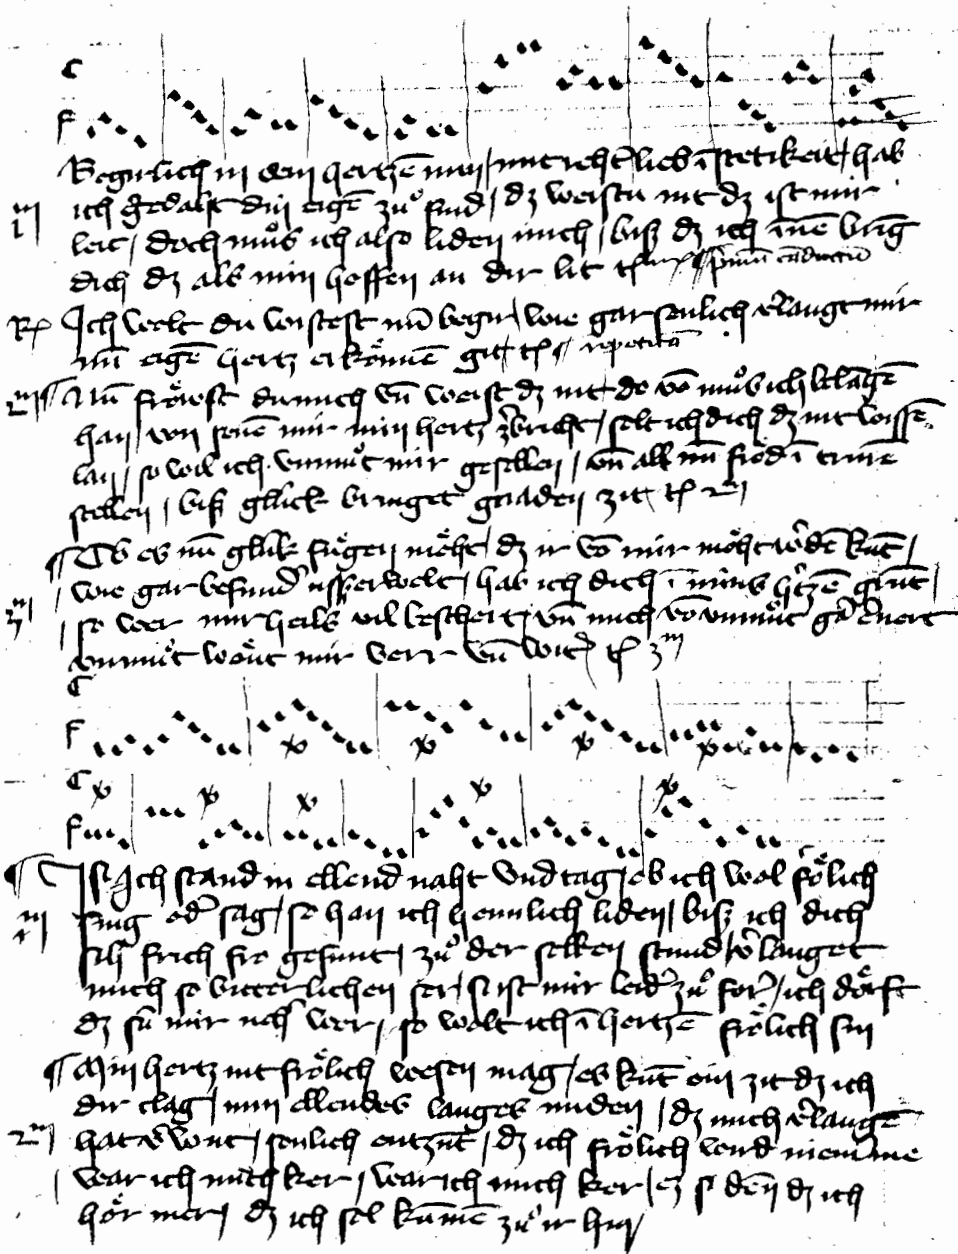 C
F
Begirlich in dem hertzē min / mit reht̄ lieb ī stetikeit / hab
jm ich gedaht din eigē zuͦ sind / dz weistu nit dz ist mir
leit / doch muͦs ich also liden mich / bisz dz ich īnē bring
dich dz als min hoffen an dir lit
R Ich wolt du wistest mī begir / wie gar senlich v̄langt mir
mī eigē hertz erkoͤnnē git repetitā
2m Nū froͤwst du mich vn̄ weist dz nit do vō muͦs ich belāgē
han / von senē mir min hertz z̄bricht / solt ich dich dz nit wissē
lan / so wil ich vnmuͦt mir gesellen / vn̄ all mī froͤd ī truwē
stellen / bisz glück bringet gnaden zit 2m
Ob es mī glük fuͤgen moͤht / dz ir vō mir moͤht w̄dē kūt /
wie gar besund̄ usserwelt / hab ich dich ī mins h̄tzē grūt /
3m so wer mir heils vil beschert / vn̄ mich vō vnmuͦt
vnmuͦt woͤnt mir verr vn̄ wit̄ 3m
C
F
C
F
Ich stand in ellend naht vnd tag / ob ich wol froͤlich
jm sing od̄ sag / so han ich heimlich liden / bisz ich dich
sich frisch fro gesunt / zuͦ der selben stund / v̄langet
mich so bitterlichen ser / si ist mir leid̄ zuͦ for̄ / ich doͤrft
dz sū mir noch wer / so wolt ich ī hertzē froͤlich sin
Min hertz nit froͤlich wesen mag / es kūt ein zit dz ich
dir clag / min ellendes langes miden / dz mich v̄langē
2m hat v̄wunt / senlich entzūt / dz ich froͤlich wird niem̄me
war ich mich ker / war ich mich ker / ez si dēn dz ich
hoͤr mer / dz ich sol kūmē zuͦ ir hin /